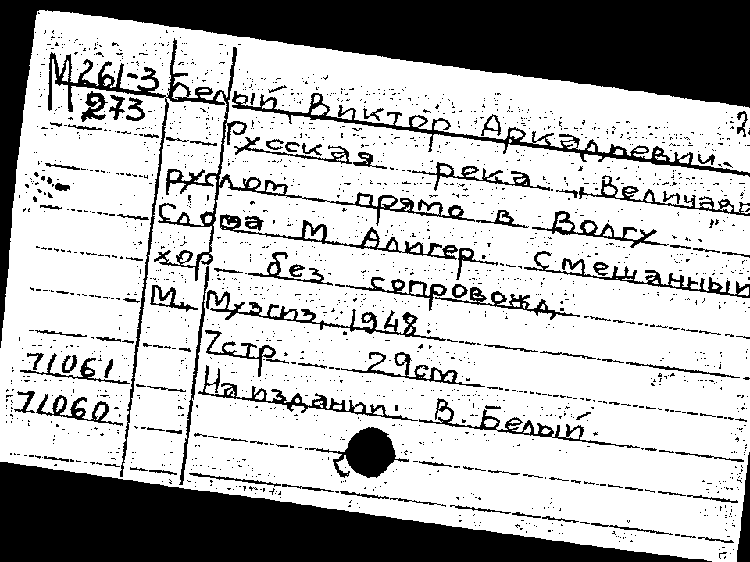 М 261-3
273
Белый, Виктор Аркадьевич.
Русская река „Величавая
руслом прямо в Волгу..."
Слова М Алигер. Смешанный
хор без сопровожд.
М., Музгиз, 1948.
7стр. 29см.
71061
На издании: В. Белый.
71060